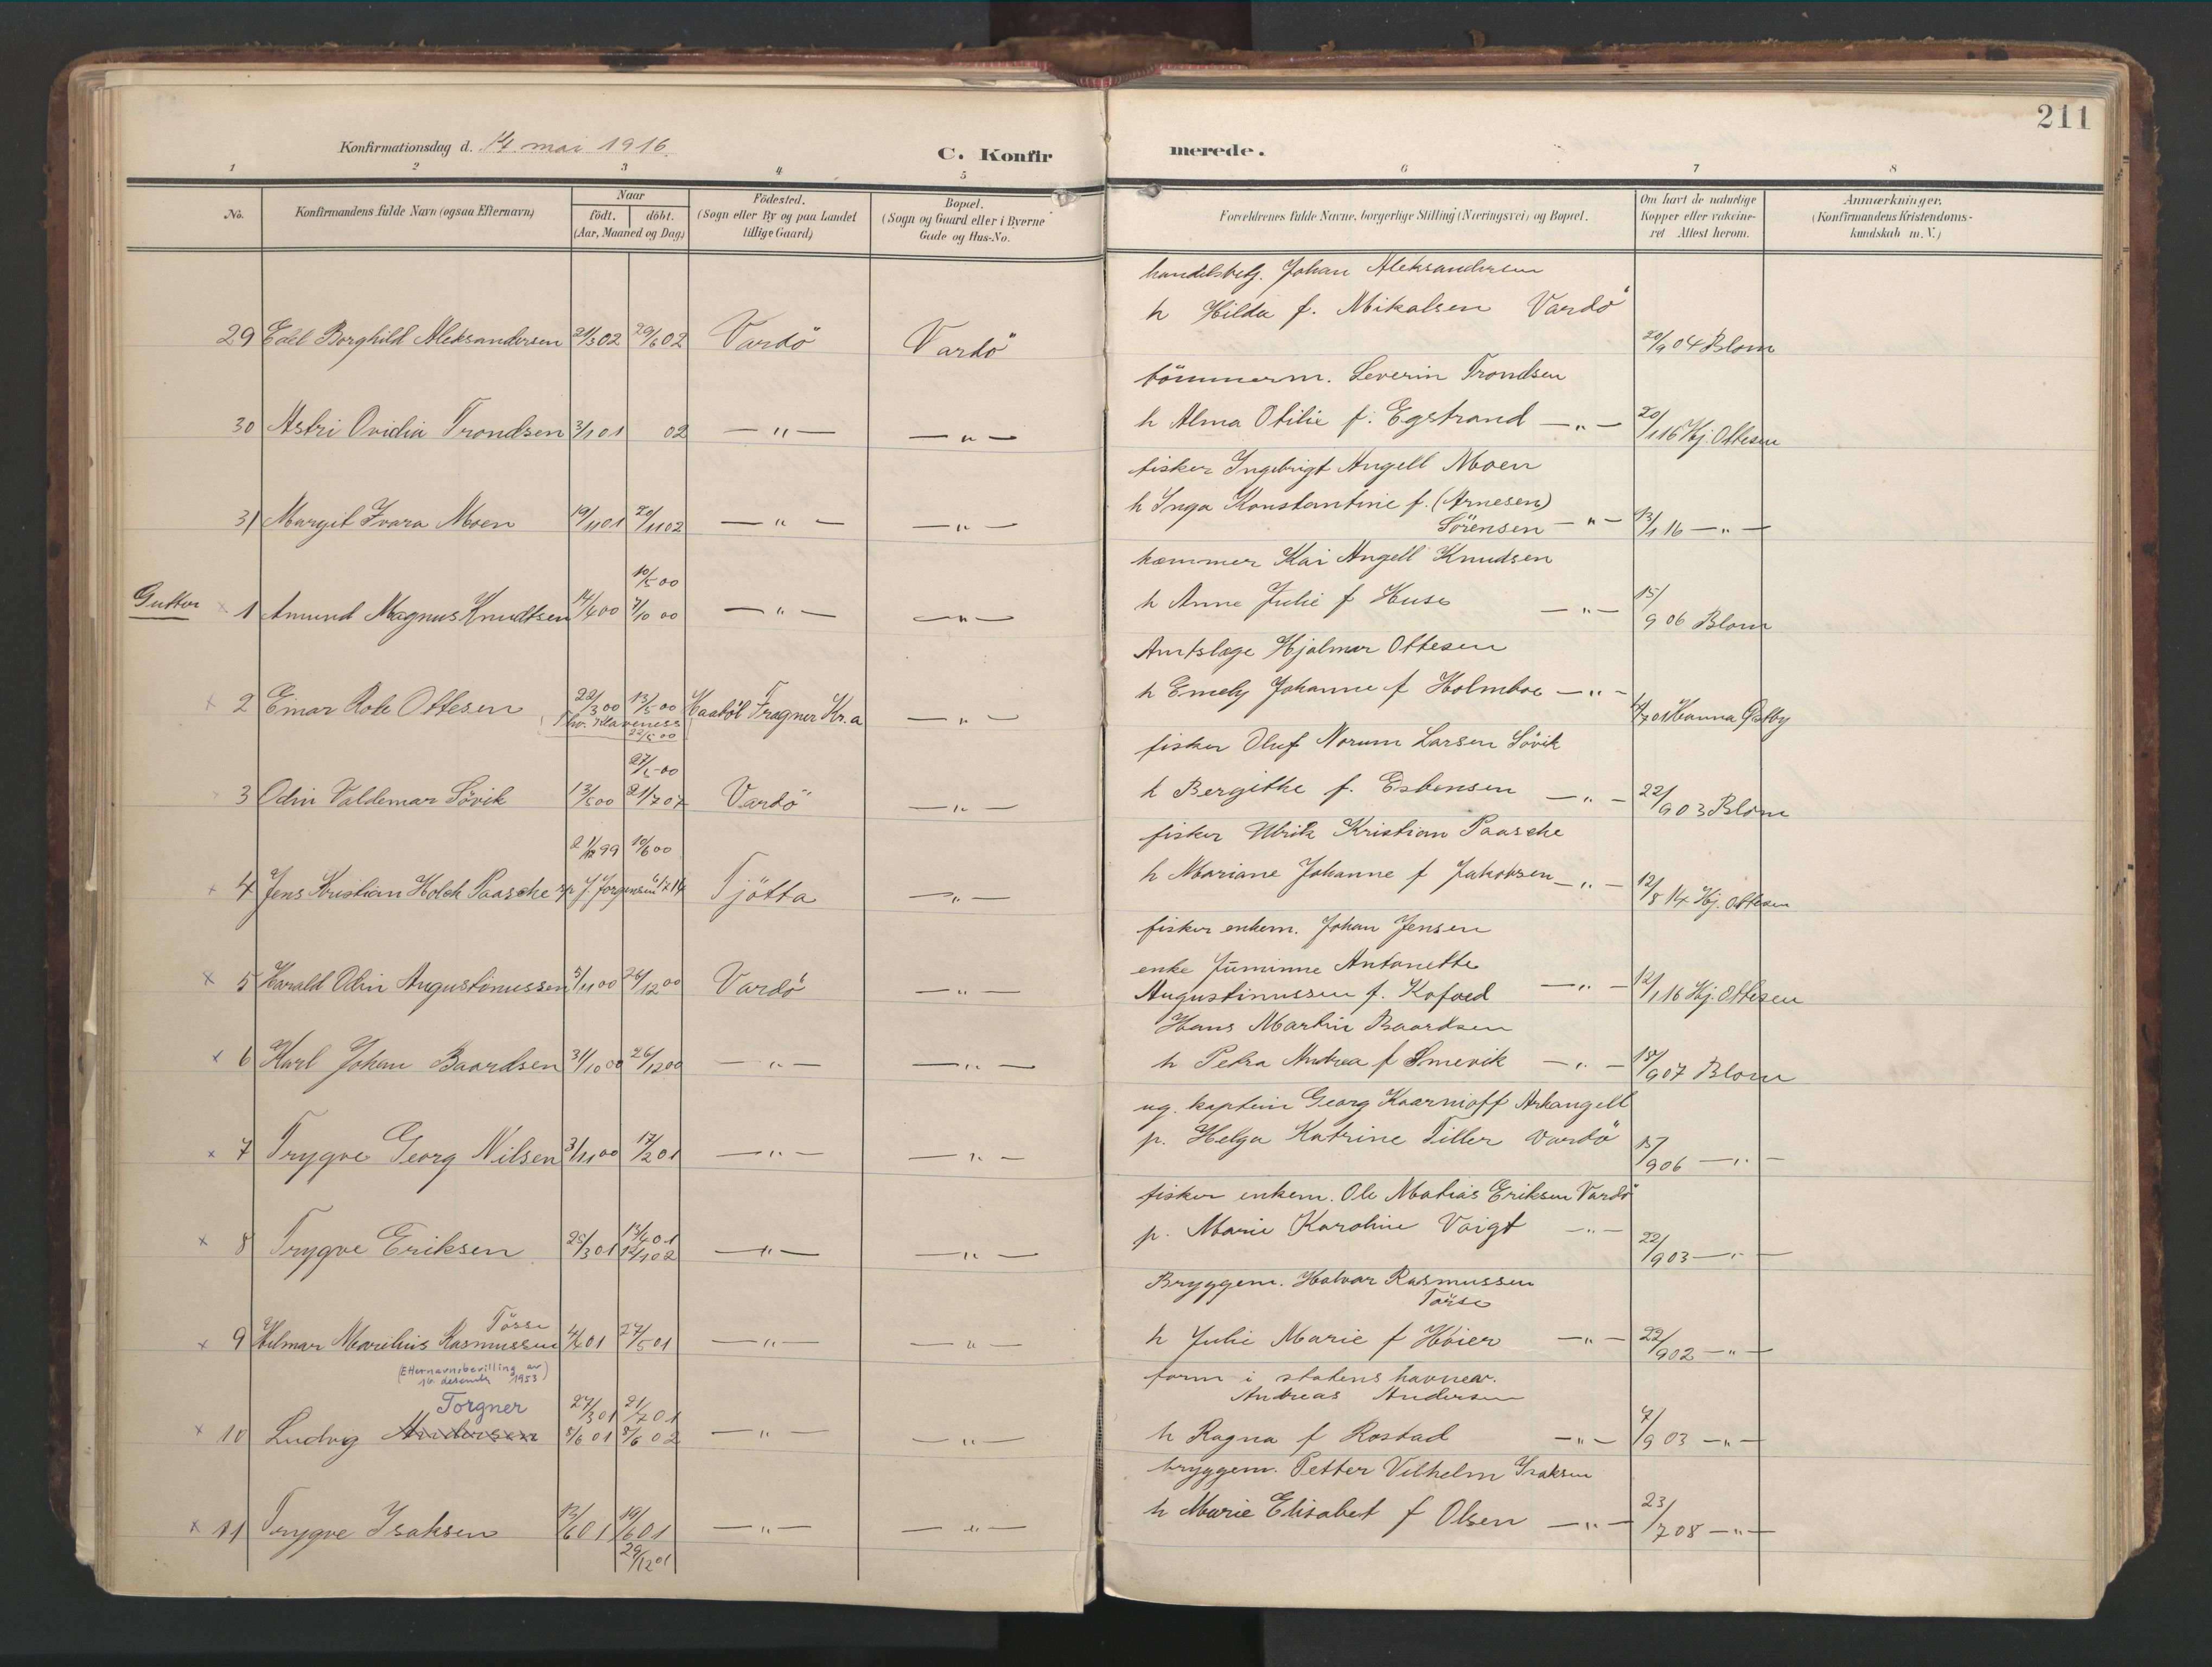 211
Konfirmationsdag d. 14. mai 1916.
C. Konfirmerede.
1 2 3 4 5 6 7 8
No.
Konfirmandens fulde Navn (ogsaa Efternavn)
Naar
födt. döbt.
(Aar, Maaned og Dag)
Födested.
(Sogn eller By og paa Landet
tillige Gaard)
Bopæl.
(Sogn og Gaard eller i Byerne
Gade og Hus-No.
Forældrenes fulde Navne, borgerlige Stilling (Næringsvei) og Bopæl.
Om havt de naturlige
Kopper eller vakcine-
ret Attest herom.
Anmærkninger.
(Konfirmandens Kristendoms-
kundskab m. V.)
handelsbetj. Johan Aleksandersen
h Hilda f. Mikalsen Vardö
29 Edel Borghild Aleksandersen 21/3 02 29/6 02 Vardö Vardö 20/9 04 Blom
tömmerm. Severin Trondsen
30 Astri Ovidia Trondsen 3/1 01 02 — " — — " — h Alma Otilie f. Egstrand — " — 20/1 16 Hj. Ottesen
fisker Ingebrigt Angell Moen
h Inga Konstantine f. (Arnesen)
31 Margit Ivara Moen 19/11 01 20/11 02 — " — — " — Sörensen — " — 13/1 16 — " —
kæmner Kai Angell Knudsen
10/5 00
Gutter × 1 Amund Magnus Knudtsen 14/4 00 7/10 00 — " — — " — h Anne Julie f Huse — " — 15/9 06 Blom
Amtslæge Hjalmar Ottesen
× 2 Einar Rode Ottesen 22/3 00 13/5 00 Haaböl Frogner Kr.a — " — h Emely Johanne f Holmboe — " — Hanna Östby
(Thv. Klaveness
22/5 00
fisker Oluf Norum Larsen Sövik
27/5 00
3 Odin Valdemar Sövik 13/5 00 21/7 07 Vardö — " — h Bergithe f. Esbensen — " — 22/9 03 Blom
fisker Ulrik Kristian Paasche
21/12 99 10/6 00
× 4 Jens Kristian Holck Paasche sp J. Jörgensen 6/12 14 Tjötta — " — h Mariane Johanne f Jakobsen — " — 12/8 14 Hj. Ottesen
fisker enkem. Johan Jensen
enke Antonette
× 5 Harald Odin Augustinussen 5/11 00 26/12 00 Vardö — " — Augustinussen f. Kofoed — " — 12/1 16 Hj. Ottesen
Hans Martin Baardsen
× 6 Karl Johan Baardsen 31/10 00 26/12 00 — " — — " — h Petra Andrea f Smevik — " — 18/9 07 Blom
ug. kaptein Georg Kaarnioff Arkangell
× 7 Trygve Georg Nilsen 3/11 00 17/2 01 — " — — " — p. Helga Katrine Tiller Vardö 15/9 06 — " —
fisker enkem. Ole Matias Eriksen Vardö
13/4 01
× 8 Trygve Eriksen 25/3 01 12/1 02 — " — — " — p. Marie Karoline Voigt — " — 22/9 03 — " —
Bryggem. Halvar Rasmussen
Törse
Tösse
× 9 Hilmar Marelius Rasmussen 4/4 01 27/5 01 — " — — " — h Julie Marie f Höier — " — 22/9 02 — " —
(Etternavnsbevilling av
16 desember 1953)
form i statens havnev.
Andreas Andersen
Torgner 27/3 01 21/7 01
× 10 Ludvg Andersen 8/6 01 8/6 02 — " — — " — h Ragna f Rostad — " — 7/9 03 — " —
bryggem. Petter Vilhelm Isaksen
× 11 Trygve Isaksen 13/6 01 19/6 01 — " — — " — h Marie Elisabet f Olsen — " — 23/7 08 — " —
29/12 01